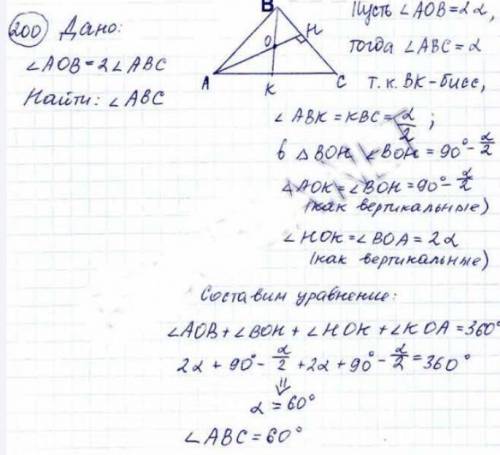 200 Дано:
∠AOB=2∠ABC
Найти: ∠ABC
B
H
O
A
K
C
Пусть ∠AOB=2α,
тогда ∠ABC=α
т.к. BK-бисс,
∠ABK=KBC=α/2;
в △BOH ∠BOH=90°-α/2
△AOK=∠BOH=90°-α/2
(как вертикальные)
∠HOK=∠BOA=2α
(как вертикальные)
Составим уравнение:
∠AOB+∠BOH+∠HOK+∠KOA=360°
2α+90°-α/2+2α+90°-α/2=360°
⇓
α=60°
∠ABC=60°